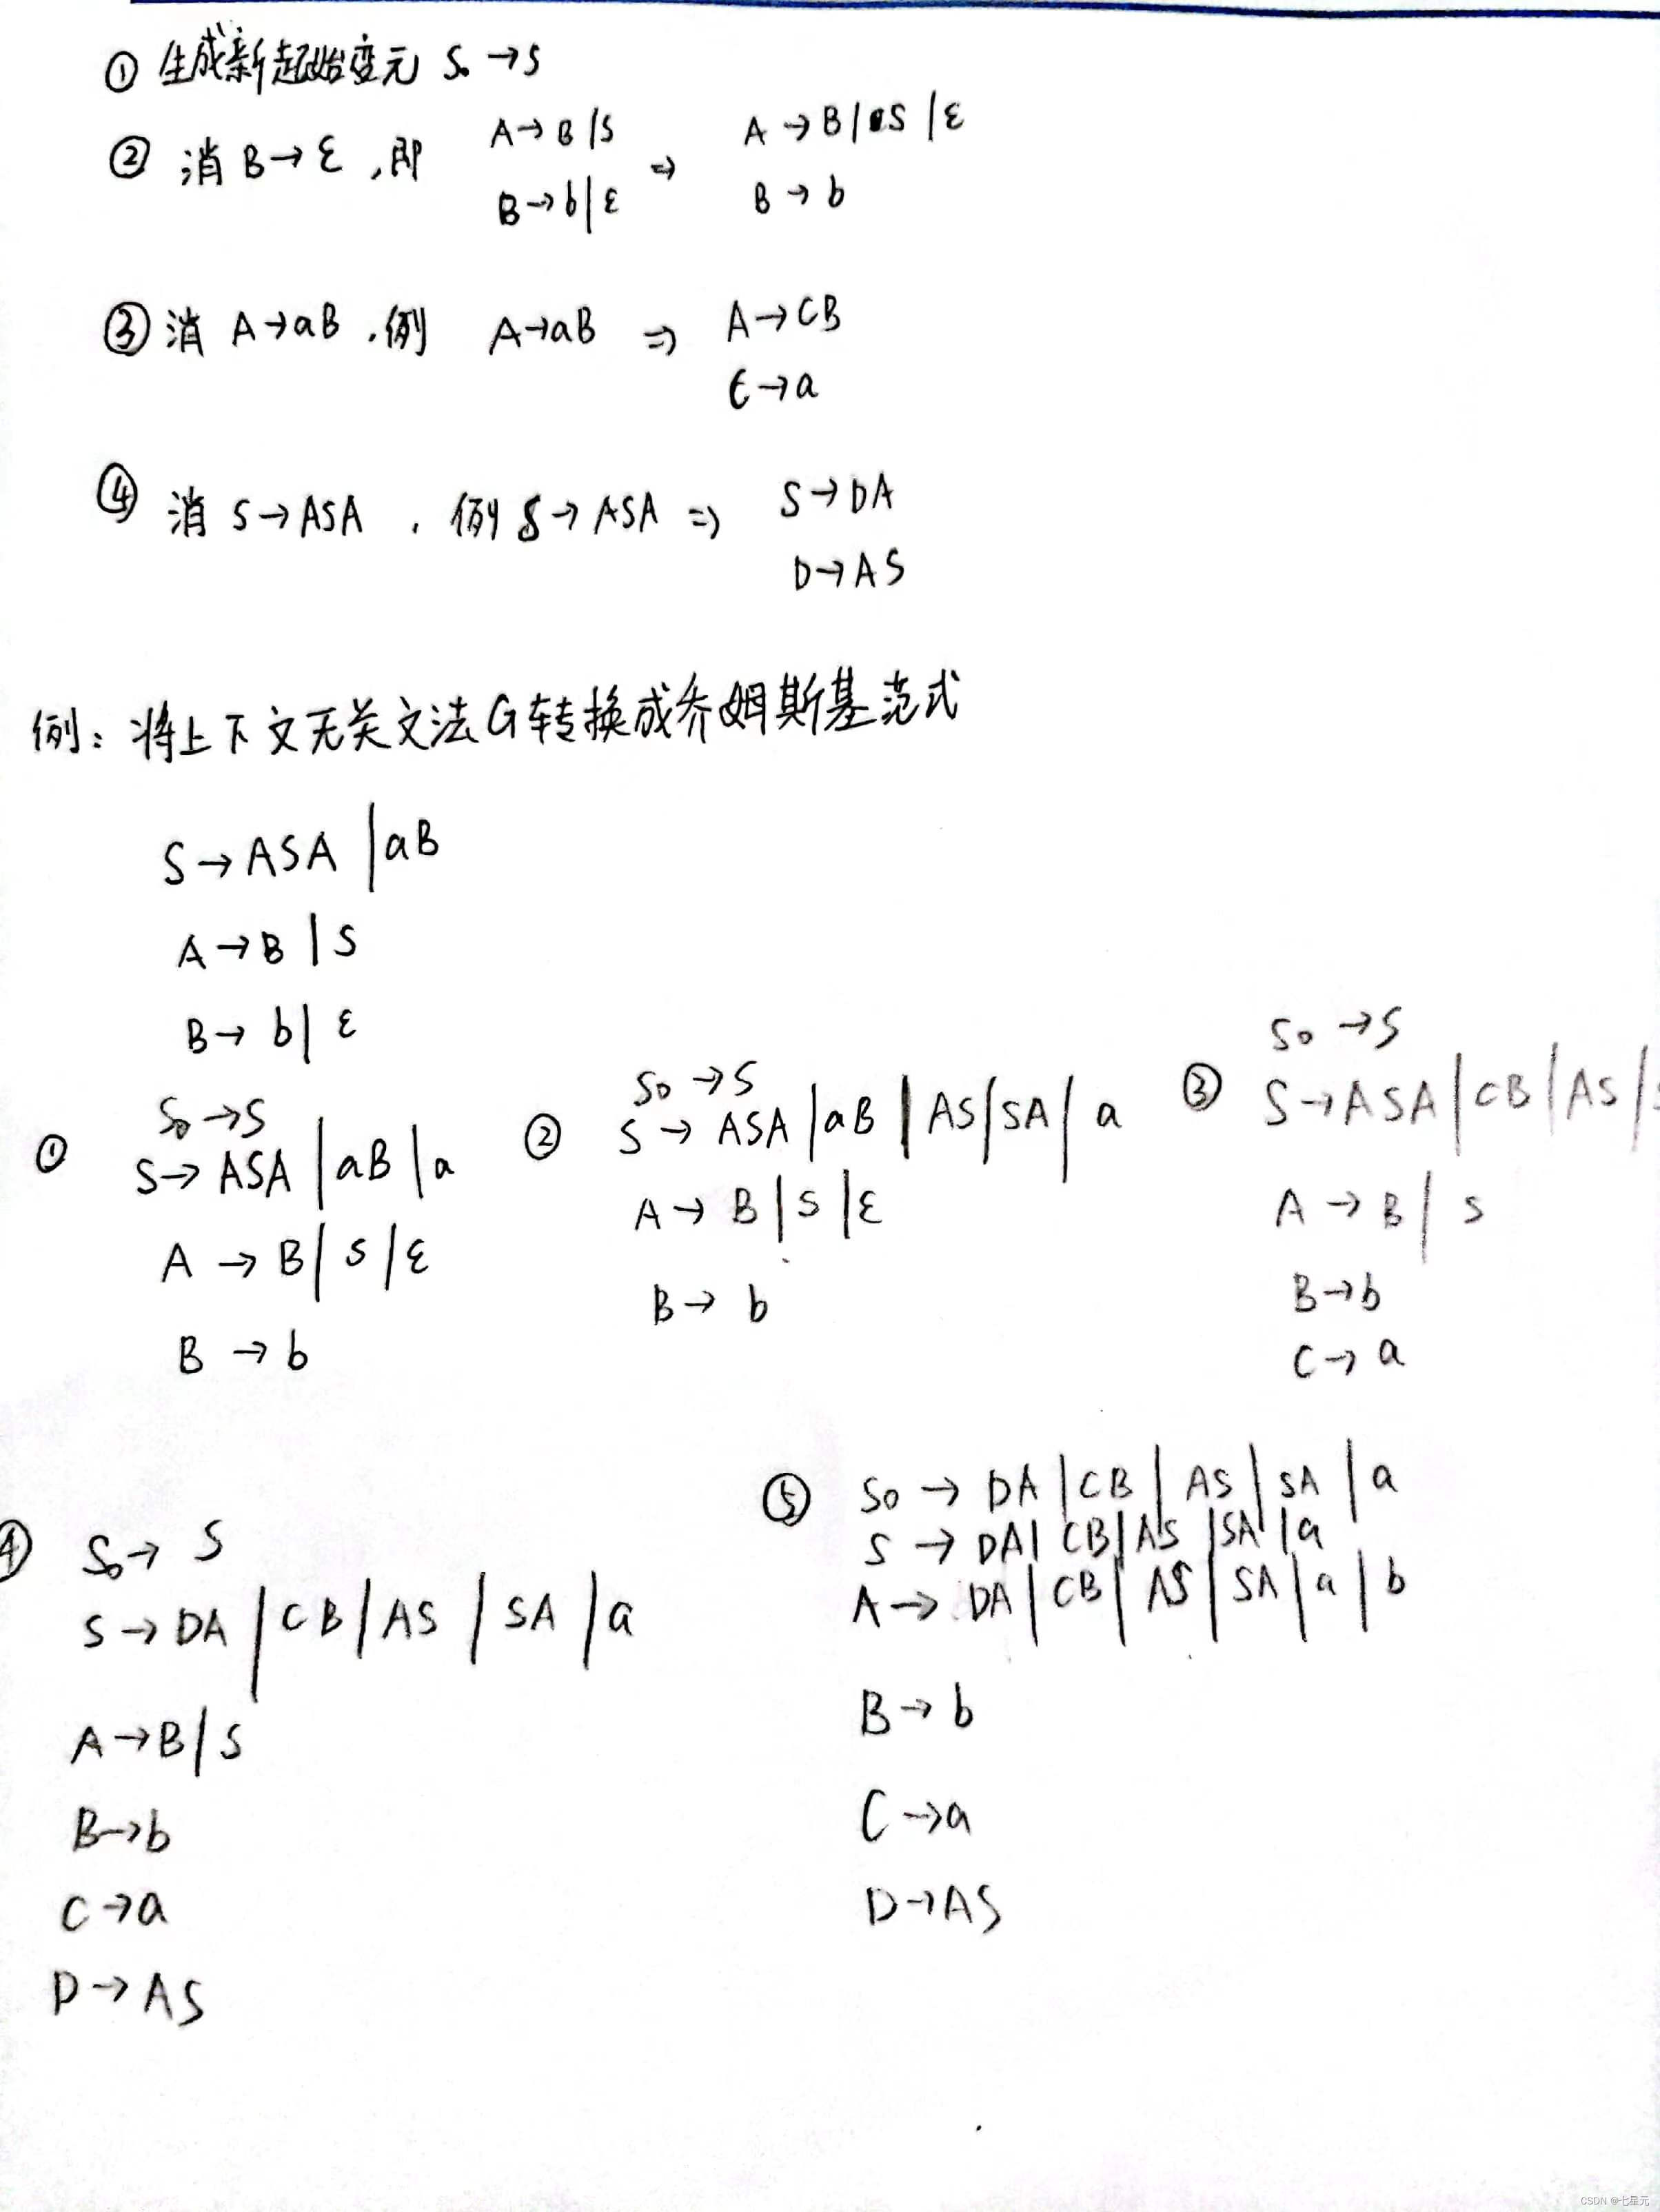 ① 生成新起始变元 S₀ → S
② 消 B → ε ,即 A → B | S ⇒ A → B | S | ε
B → b | ε B → b
③ 消 A → aB ,例 A → aB ⇒ A → CB
C → a
④ 消 S → ASA , 例 S → ASA ⇒ S → DA
D → AS
例: 将上下文无关文法G转换成乔姆斯基范式
S → ASA | aB
A → B | S
B → b | ε
① S₀ → S
S → ASA | aB | a
A → B | S | ε
B → b
② S₀ → S
S → ASA | aB | AS | SA | a
A → B | S | ε
B → b
③ S₀ → S
S → ASA | CB | AS |
A → B | S
B → b
C → a
④ S₀ → S
S → DA | CB | AS | SA | a
A → B | S
B → b
C → a
D → AS
⑤ S₀ → DA | CB | AS | SA | a
S → DA | CB | AS | SA | a
A → DA | CB | AS | SA | a | b
B → b
C → a
D → AS
CSDN @七星元